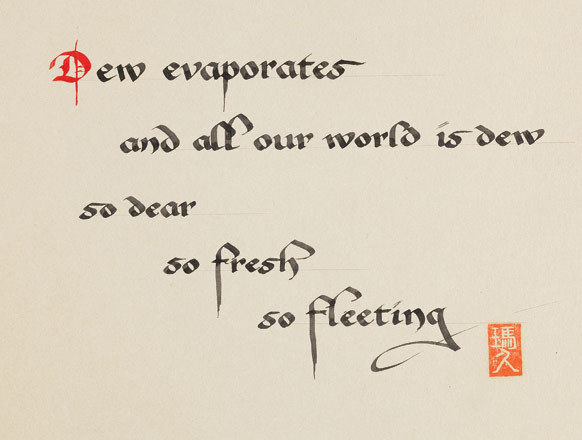 Dew evaporates
and all our world is dew
so dear
so fresh
so fleeting
瑪久